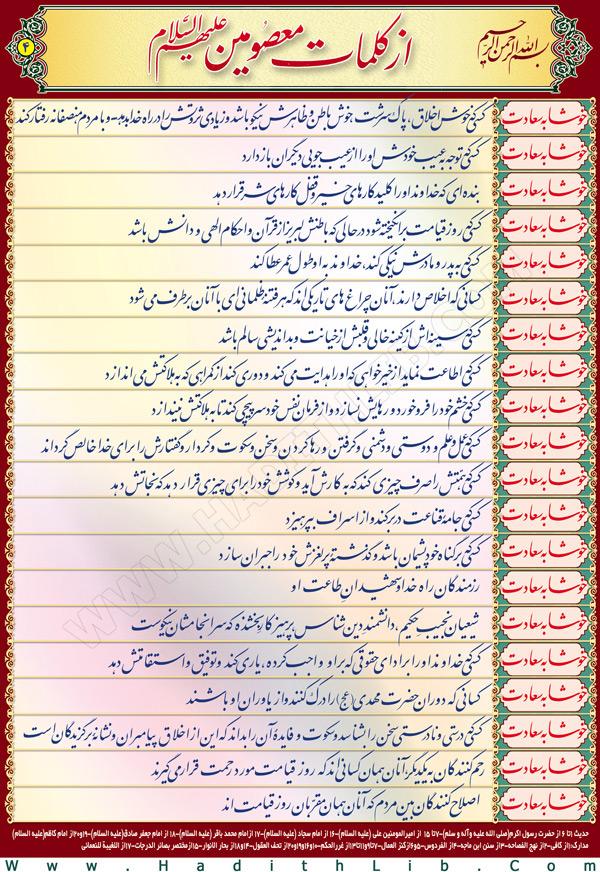 بسم الله الرحمن الرحیم
از کلمات معصومین علیهم السلام
۴
خوشا به سعادت کسی خوش اخلاق، پاک سرشت، خوش باطن و ظاهرش نیکو باشد و زیادی ثروتش را در راه خدا بدهد و با مردم منصفانه رفتار کند
خوشا به سعادت کسی توجه به عیب خودش او را از عیب جویی دیگران باز دارد
خوشا به سعادت بنده ای که خداوند او را کلید کارهای خیر و قفل کارهای شر قرار دهد
خوشا به سعادت کسی روز قیامت برانگیخته شود در حالی که باطنش لبریز از قرآن و احکام الهی و دانش باشد
خوشا به سعادت کسی به پدر و مادرش نیکی کند، خداوند به او طول عمر عطا کند
خوشا به سعادت کسانی که اخلاص دارند، آنان چراغ های تاریکی اند که هر فتنه ظلمانی ای با آنان برطرف می شود
خوشا به سعادت کسی سینه اش از کینه خالی و قلبش از خیانت و بداندیشی سالم باشد
خوشا به سعادت کسی اطاعت نماید از خیرخواهی که او را هدایت می کند و دوری کند از گمراهی که به هلاکتش می اندازد
خوشا به سعادت کسی خشم خود را فرو خورد و رهایش نسازد و از فرمان نفس خود سرپیچی کند تا به هلاکتش نیندازد
خوشا به سعادت کسی عمل و علم و دوستی و دشمنی و گرفتن و رها کردن و سخن و سکوت و کردار و گفتارش را برای خدا خالص گرداند
خوشا به سعادت کسی همتش را صرف چیزی کند که به کارش آید و کوشش خود را برای چیزی قرار دهد که نجاتش دهد
خوشا به سعادت کسی جامه قناعت در بر کند و از اسراف بپرهیزد
خوشا به سعادت کسی بر گناه خود پشیمان باشد و گذشته پر لغزش خود را جبران سازد
خوشا به سعادت رزمندگان راه خدا و شهیدان طاعت او
خوشا به سعادت شیعیان نجیب حکیم، دانشمند دین شناس پرهیزکار بخشنده که سرانجامشان نیکوست
خوشا به سعادت کسی خداوند او را بر ادای حقوقی که بر او واجب کرده، یاری کند و توفیق و استقامتش دهد
خوشا به سعادت کسانی که دوران حضرت مهدی (عج) را درک کنند و از یاوران او باشند
خوشا به سعادت کسی درستی و نادرستی سخن را بشناسد و سکوت و فایده آن را بداند که این از اخلاق پیامبران و نشانه برگزیدگان است
خوشا به سعادت رحم کنندگان به یکدیگر، آنان همان کسانی اند که روز قیامت مورد رحمت قرار می گیرند
خوشا به سعادت اصلاح کنندگان بین مردم که آنان همان مقربان روز قیامت اند
حدیث ۱ تا ۶ از حضرت رسول اکرم (صلی الله علیه وآله و سلم)-۷ تا ۱۵ از امیرالمومنین علی (علیه السلام)-۱۶ از امام سجاد (علیه السلام)-۱۷ از امام محمد باقر (علیه السلام)-۱۸ از امام جعفر صادق (علیه السلام)-۱۹و۲۰ از امام کاظم (علیه السلام)
Www.HadithLib.Com